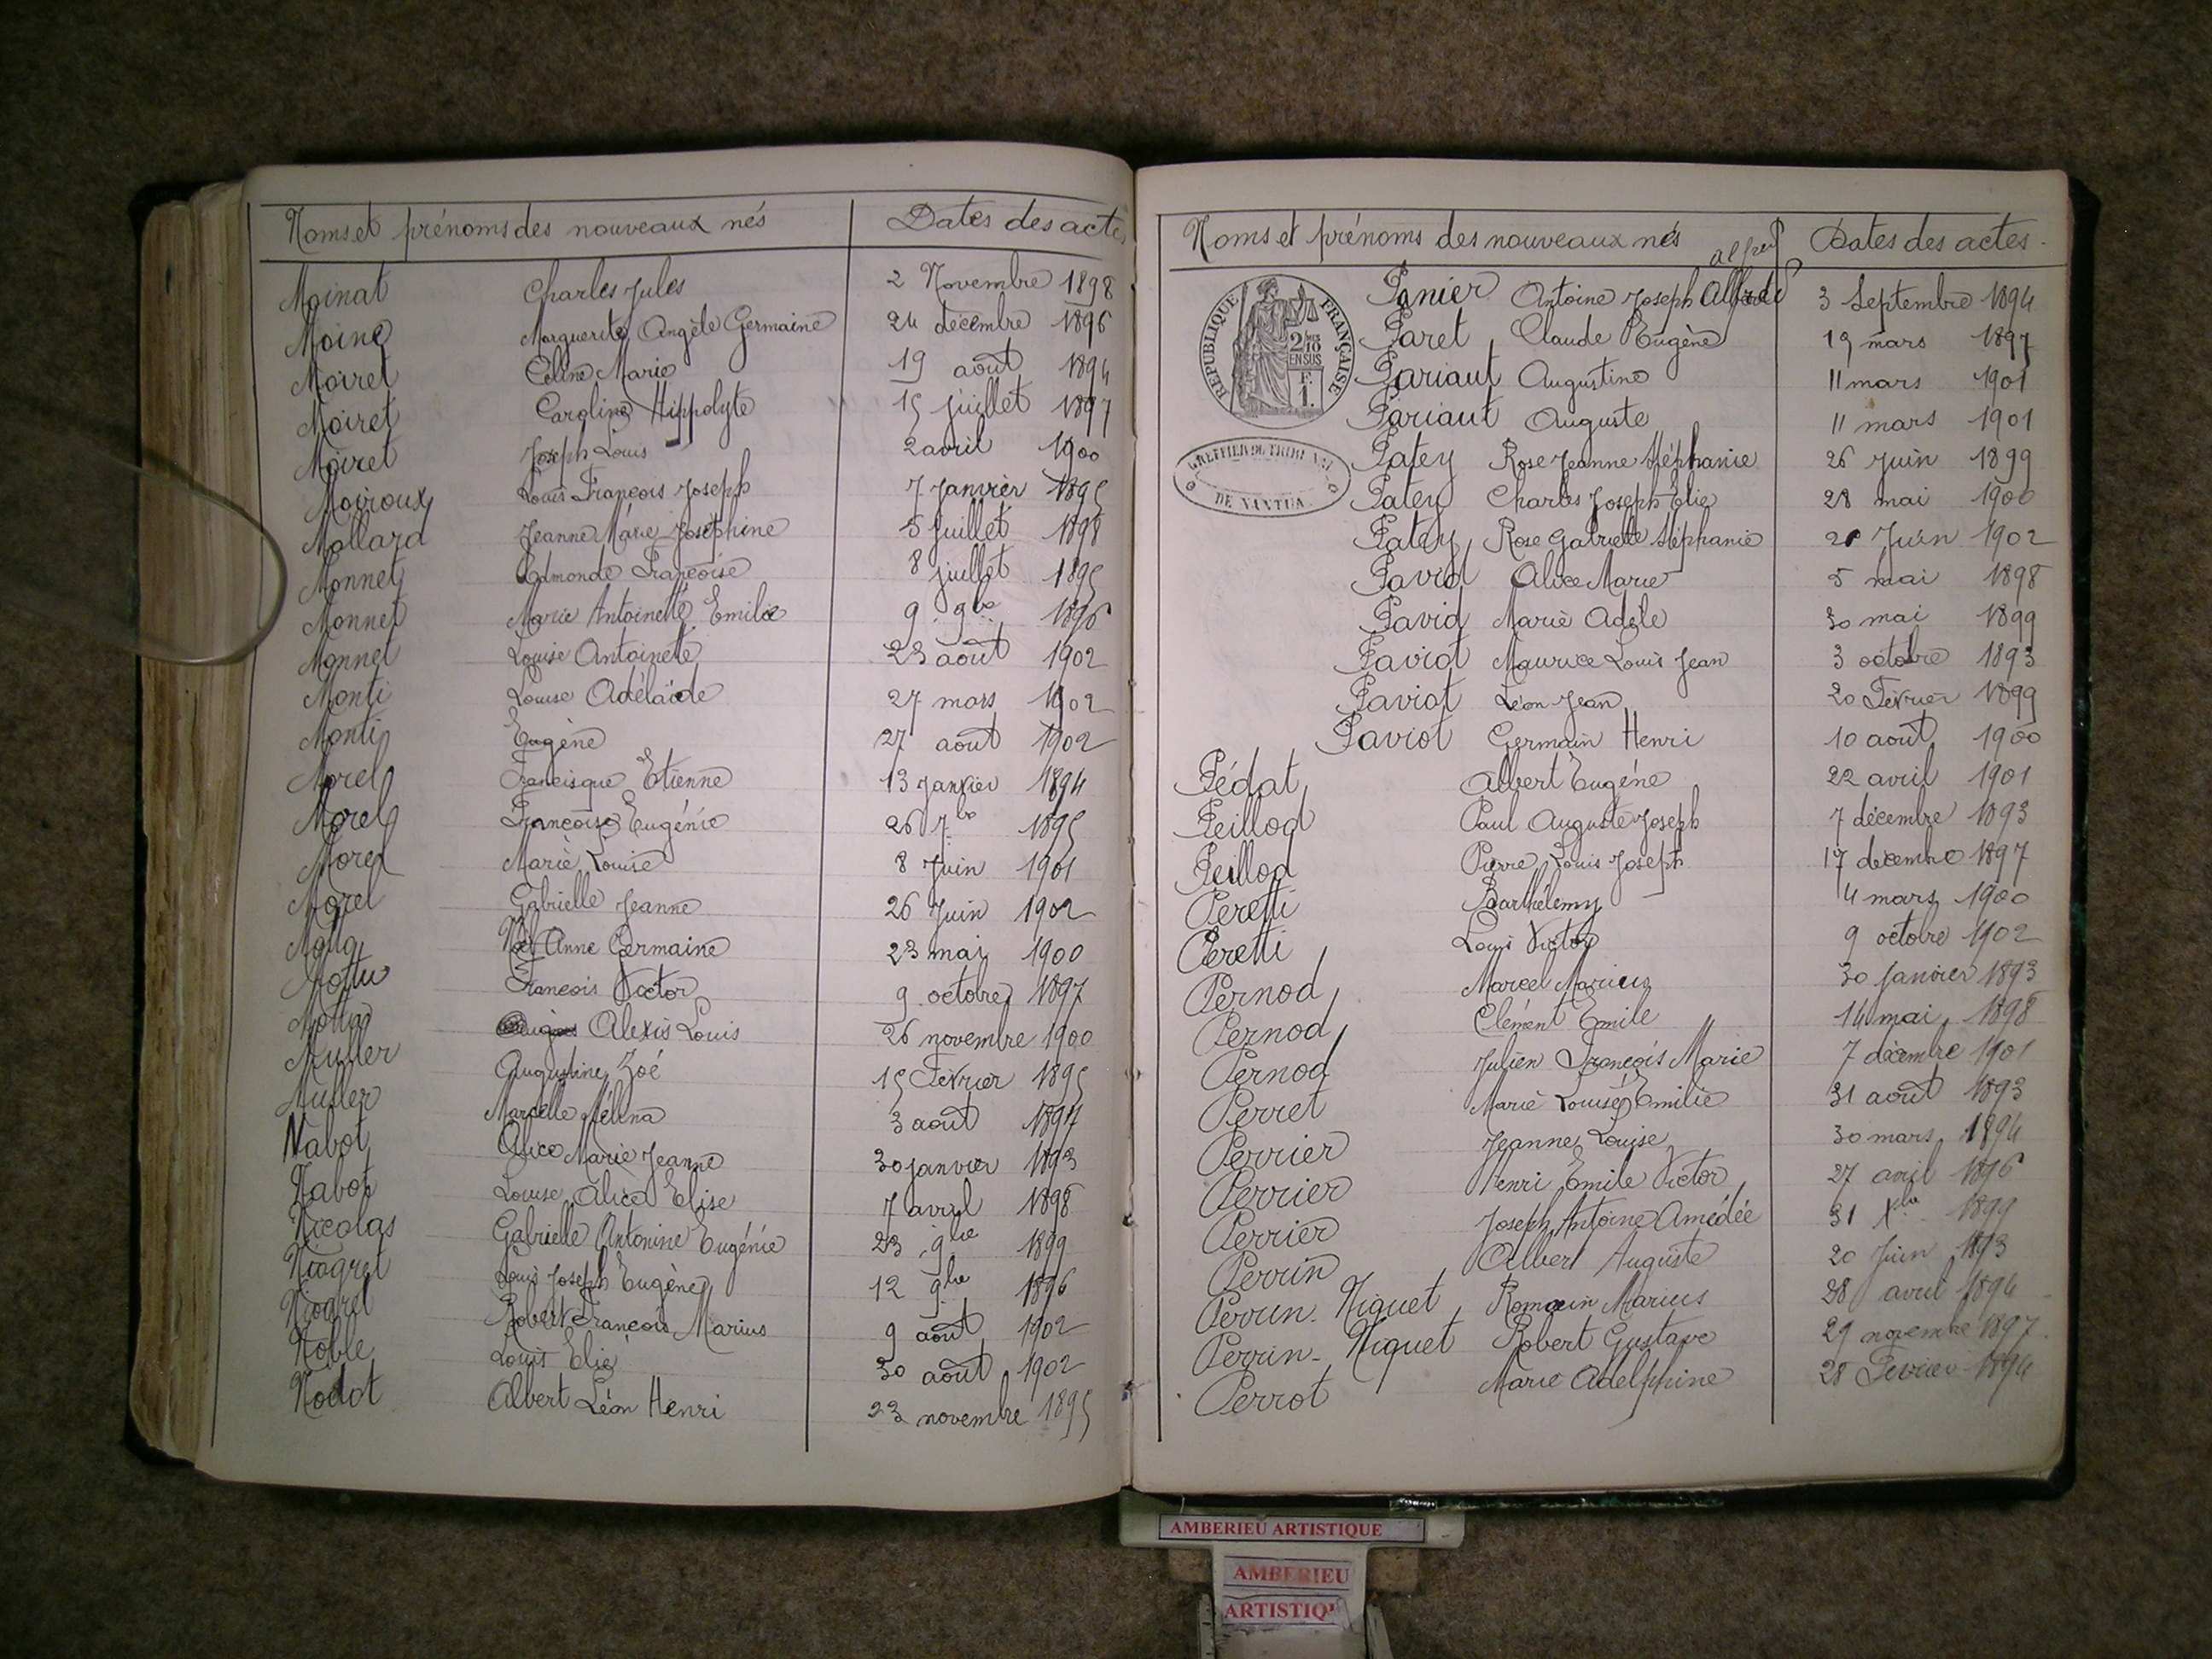 Noms et prénoms des nouveaux nés Dates des actes
Moinat Charles Jules 2 Novembre 1898
Moine Marguerite Angèle Germaine 24 décembre 1896
Moiret Celine Marie 19 août 1894
Moiret Caroline Hippolyte 15 juillet 1897
Moiret Joseph Louis 2 avril 1900
Moiroux Louis François Joseph 7 Janvier 1895
Mollard Jeanne Marie Joséphine 5 Juillet 1898
Monnet Edmonde Françoise 8 juillet 1895
Monnet Marie Antoinette Emilie 9 9bre 1896
Monnet Louise Antoinette 23 août 1902
Monti Louise Adélaïde 27 mars 1902
Monti Eugène 27 août 1902
Morel Francisque Etienne 13 Janvier 1894
Morel Françoise Eugénie 26 7bre 1895
Morel Marie Louise 8 Juin 1901
Morel Gabrielle Jeanne 26 Juin 1902
Anne Germaine 23 mai 1900
Mottu François Victor 9 octobre 1897
Alexis Louis 26 novembre 1900
Muller Augustine Zoé 15 Février 1895
Muller Marcelle Mélina 3 août 1897
Nabot Alice Marie Jeanne 30 janvier 1893
Nabot Louise Alice Elise 7 avril 1898
Nicolas Gabrielle Antonine Eugénie 23 9bre 1899
Niogret Louis Joseph Eugène 12 9bre 1896
Niogret Robert François Marius 9 août 1902
Noble Louis Elie 30 août 1902
Nodot Albert Léon Henri 23 novembre 1895
Noms et prénoms des nouveaux nés Dates des actes.
alfred
Panier Antoine Joseph 3 Septembre 1894
Paret Claude Eugène 19 mars 1897
Pariaut Augustine 11 mars 1901
Pariaut Auguste 11 mars 1901
Patey Rose Jeanne Stéphanie 26 Juin 1899
Patey Charles Joseph Elie 28 mai 1900
Patey Rose Gabrielle Stéphanie Juin 1902
Paviot Alice Marie 5 mai 1898
Paviot Marie Adèle 30 mai 1899
Paviot Maurice Louis Jean 3 octobre 1893
Paviot Léon Jean 20 Février 1899
Paviot Germain Henri 10 août 1900
Pédat Albert Eugène 22 avril 1901
Peillod Paul Auguste Joseph 7 décembre 1893
Peillod Pierre Louis Joseph 17 décembre 1897
Peretti Barthélemy 4 mars 1900
Peretti Louis Victor 9 octobre 1902
Pernod Marcel Marius 30 Janvier 1893
Pernod Clément Emile 14 mai 1898
Pernod Julien François Marie 7 décembre 1901
Perret Marie Louise Emilie 31 août 1893
Perrier Jeanne Louise 30 mars 1894
Perrier Henri Emile Victor 27 avril 1896
Perrier Joseph Antoine Amédée 31 Xbre 1899
Perrin Albert Auguste 20 Juin 1893
Perrin-Niguet Romain Marius 28 avril 1894
Perrin-Niguet Robert Gustave 29 novembre 1897
Perrot Marie Adelphine 28 Février 1894
REPUBLIQUE FRANÇAISE
2/10
EN SUS
F.
1.
GREFFIER DU TRIBUNAL
DE NANTUA
AMBERIEU ARTISTIQUE
AMBERIEU
ARTISTIQU